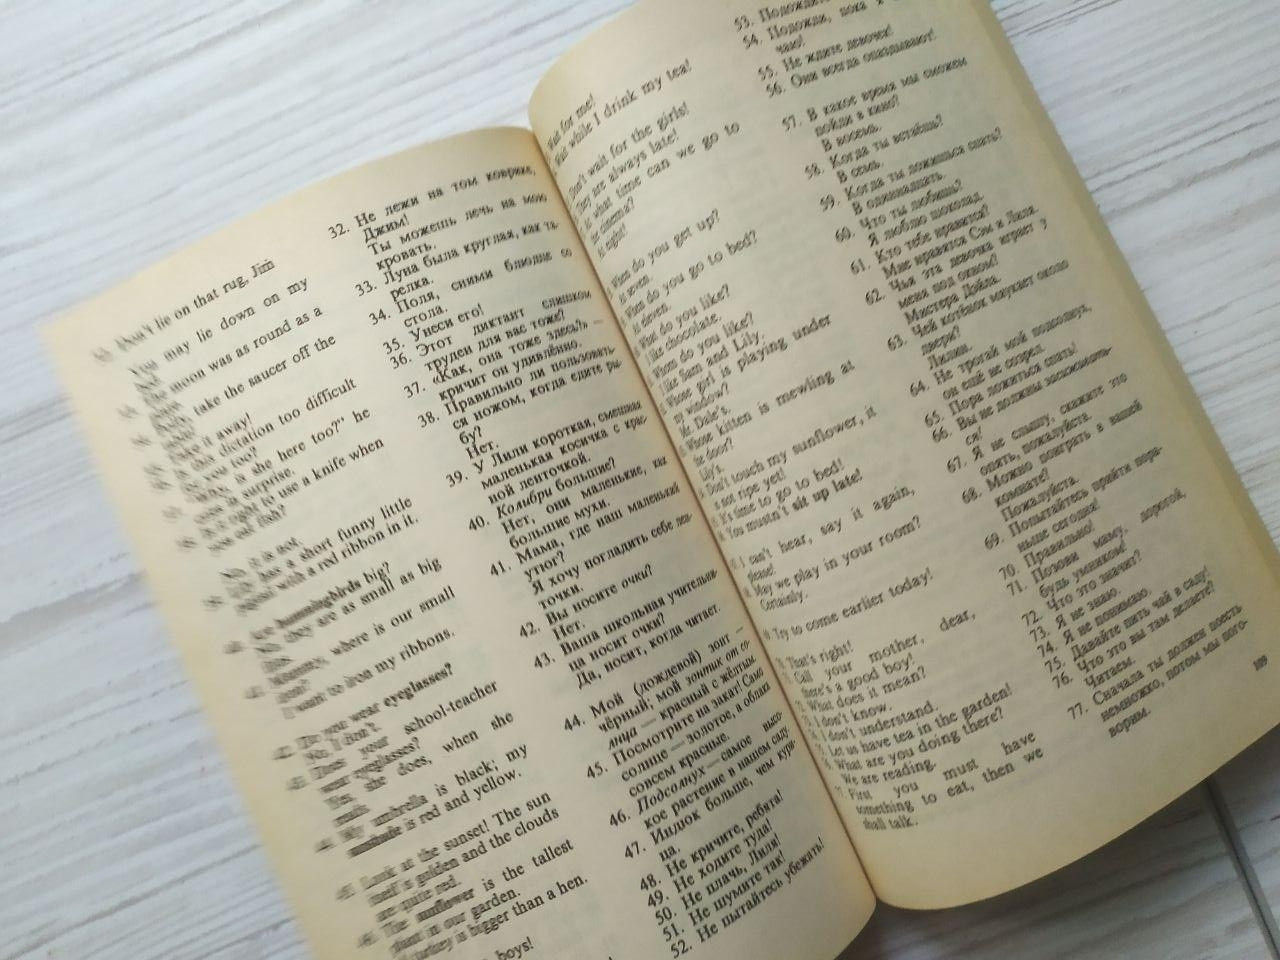 Don't lie on that rug, Jim
You may lie down on my
moon was as round as a
take the saucer off the
it away!
this dictation too difficult
you too?
is she here too?" he
in surprise.
it right to use a knife when
you eat fish?
No, it is not.
has a short funny little
with a red ribbon in it.
Are hummingbirds big?
No, they are as small as big
Mammy, where is our small
I want to iron my ribbons.
Do you wear eyeglasses?
No, I don't.
Does your school-teacher
wear eyeglasses?
Yes, she does, when she
My umbrella is black; my
sunshade is red and yellow.
Look at the sunset! The sun
itself is golden and the clouds
are quite red.
The sunflower is the tallest
plant in our garden.
turkey is bigger than a hen.
boys!
32. Не лежи на том коврике,
Джим!
Ты можешь лечь на мою
кровать.
33. Луна была круглая, как та-
релка.
34. Поля, сними блюдце со
стола.
35. Унеси его!
36. Этот диктант слишком
труден для вас тоже?
37. «Как, она тоже здесь?» —
кричит он удивлённо.
38. Правильно ли пользовать-
ся ножом, когда едите ры-
бу?
Нет.
39. У Лили короткая, смешная
маленькая косичка с крас-
ной ленточкой.
40. Колибри большие?
Нет, они маленькие, как
большие мухи.
41. Мама, где наш маленький
утюг?
Я хочу погладить себе лен-
точки.
42. Вы носите очки?
Нет.
43. Ваша школьная учительни-
ца носит очки?
Да, носит, когда читает.
44. Мой (дождевой) зонт —
чёрный; мой зонтик от со-
лнца — красный с жёлтым.
45. Посмотрите на закат! Само
солнце — золотое, а облака
совсем красные.
46. Подсолнух — самое высо-
кое растение в нашем саду.
47. Индюк больше, чем кури-
ца.
48. Не кричите, ребята!
49. Не ходите туда!
50. Не плачь, Лили!
51. Не шумите так!
52. Не пытайтесь убежать!
Wait for me!
Wait while I drink my tea!
Don't wait for the girls!
They are always late!
At what time can we go to
the cinema?
At eight!
When do you get up?
At seven.
When do you go to bed?
At eleven.
What do you like?
I like chocolate.
Whom do you like?
I like Sam and Lily.
Whose girl is playing under
my window?
Mr. Dale's.
Whose kitten is mewling at
the door?
Lily's.
Don't touch my sunflower, it
is not ripe yet!
It's time to go to bed!
You mustn't sit up late!
I can't hear, say it again,
please!
May we play in your room?
Certainly.
Try to come earlier today!
That's right!
Call your mother, dear,
there's a good boy!
What does it mean?
I don't know.
I don't understand.
Let us have tea in the garden!
What are you doing there?
We are reading.
First you must have
something to eat, then we
shall talk.
53. Подождите
54. Подожди, пока я
чаю!
55. Не ждите девочек!
56. Они всегда опаздывают!
57. В какое время мы сможем
пойди в кино?
В восемь.
58. Когда ты встаёшь?
В семь.
59. Когда ты ложишься спать?
В одиннадцать.
60. Что ты любишь?
Я люблю шоколад.
61. Кто тебе нравится?
Мне нравится Сэм и Лили.
62. Чья эта девочка играет у
меня под окном?
Мистера Дэйла.
63. Чей котёнок мяукает около
двери?
Лилин.
64. Не трогай мой подсолнух,
он ещё не созрел.
65. Пора ложиться спать!
66. Вы не должны засиживать-
ся!
67. Я не слышу, скажите это
опять, пожалуйста.
68. Можно поиграть в вашей
комнате?
Пожалуйста.
69. Попытайтесь прийти пора-
ньше сегодня!
70. Правильно!
71. Позови маму, дорогой,
будь умником!
72. Что это значит?
73. Я не знаю.
74. Я не понимаю.
75. Давайте пить чай в саду!
76. Что это вы там делаете?
Читаем.
77. Сначала ты должен поесть
немножко, потом мы пого-
ворим.
109